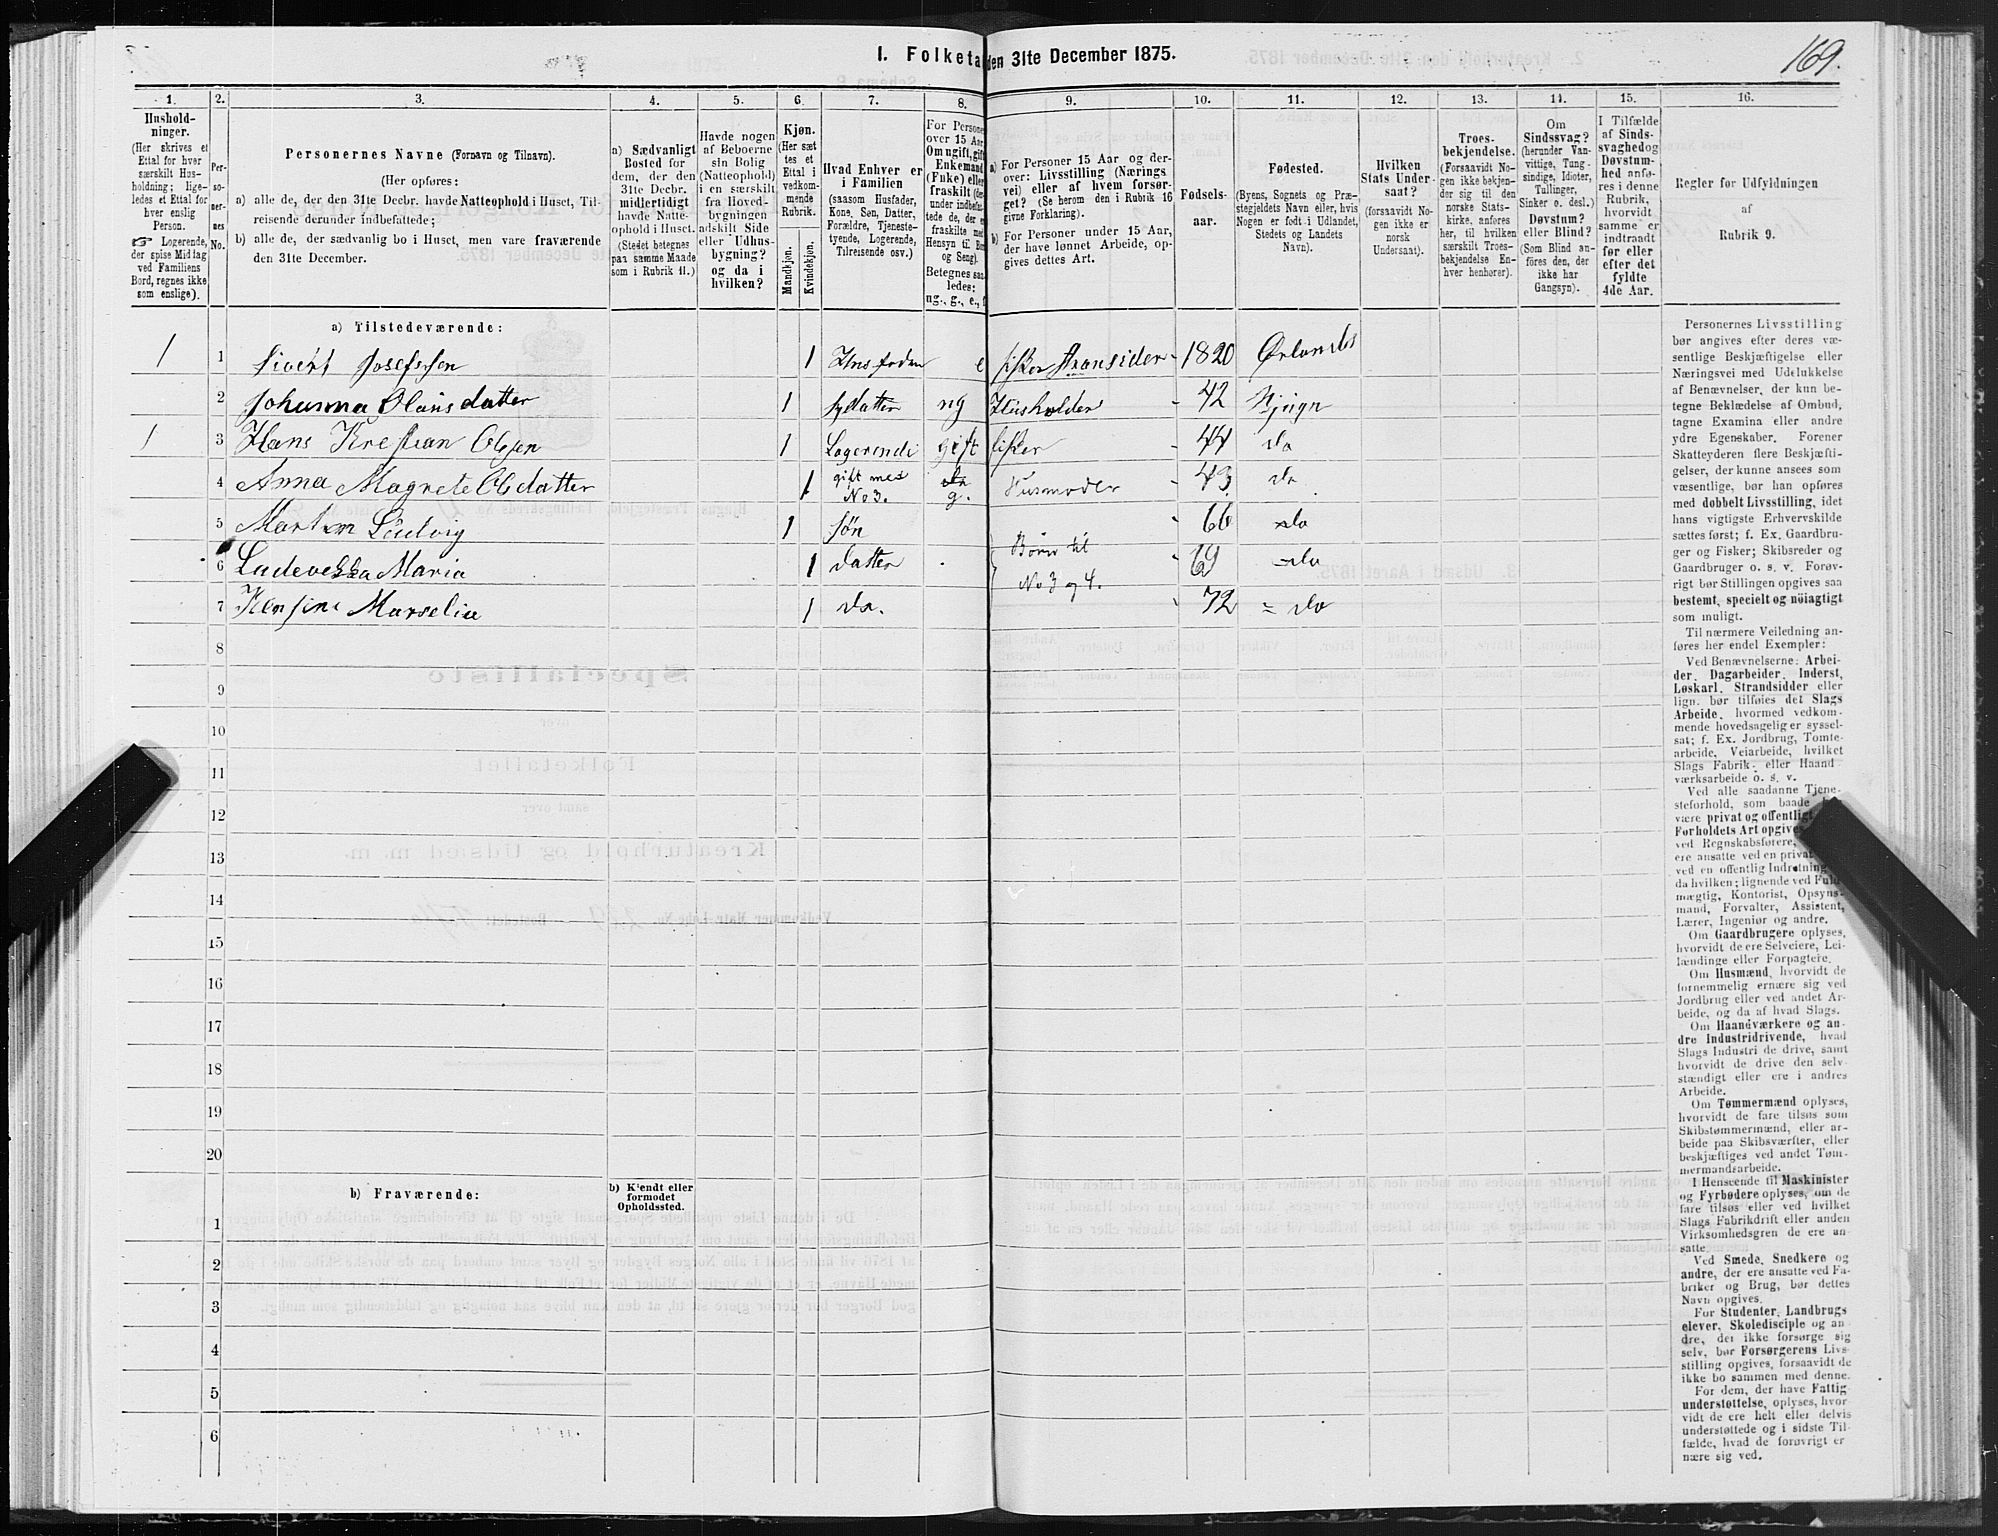 I. Folketa den 31te December 1875.
169.
1. 2. 3. 4. 5. 6. 7. 8. 9. 10. 11. 12. 13. 14. 15. 16.
Hushold-
ninger.
(Her skrives et
Ettal for hver
særskilt Hus-
holdning; lige-
ledes et Ettal for
hver enslig
Person.
☞ Logerende,
der spise Middag
ved Familiens
Bord, regnes ikke
som enslige).
Per-
so-
ner-
nes
No.
Personernes Navne (Fornavn og Tilnavn).
(Her opføres:
a) alle de, der den 31te Decbr. havde Natteophold i Huset, Til-
reisende derunder indbefattede;
b) alle de, der sædvanlig bo i Huset, men vare fraværende
den 31te December.
a) Sædvanligt
Bosted for
dem, der den
31te Decbr.
midlertidigt
havde Natte-
ophold i Huset.
(Stedet betegnes
paa samme Maade
som i Rubrik 11.)
Havde nogen
af Beboerne
sin Bolig
(Natteophold)
i en særskilt
fra Hoved-
bygningen
adskilt Side
eller Udhus-
bygning?
og da i
hvilken?
Kjøn.
(Her sæt
tes et
Ettal i
vedkom-
mende
Rubrik.
Mandkjøn.
Kvindekjøn.
Hvad Enhver er
i Familien
(saasom Husfader,
Kone, Søn, Datter,
Forældre, Tjeneste-
tyende, Logerende,
Tilreisende osv.)
For Persone
over 15 Aar
Om ugift, gift
Enkemand
(Enke) eller
fraskilt (der-
under indbefat-
tede de, der er
fraskilte med
Hensyn til Bord
og Seng).
Betegnes saa-
ledes:
ug., g., e., f.
a) For Personer 15 Aar og der-
over: Livsstilling (Nærings
vei) eller af hvem forsør-
get? (Se herom den i Rubrik 16
givne Forklaring).
b) For Personer under 15 Aar,
der have lønnet Arbeide, op-
gives dettes Art.
Fødsels-
aar.
Fødested.
(Byens, Sognets og Præ-
stegjeldets Navn eller, hvis
Nogen er født i Udlandet,
Stedets og Landets
Navn).
Hvilken
Stats Under-
saat?
(forsaavidt No-
gen ikke er
norsk
Undersaat).
Troes-
bekjendelse.
(Forsaavidt No-
gen ikke bekjen-
der sig til den
norske Stats-
kirke, anføres
her, til hvilken
særskilt Troes-
bekjendelse En-
hver henhører).
Om
Sindssvag?
(herunder Van-
vittige, Tung-
sindige, Idioter,
Tullinger,
Sinker o. desl.)
Døvstum?
eller Blind?
(Som Blind an-
føres den, der
ikke har
Gangsyn).
I Tilfælde
af Sinds-
svaghed og
Døvstum-
hed anfø-
res i denne
Rubrik,
hvorvidt
samme er
indtraadt
før eller
efter det
fyldte
4de Aar.
Regler for Udfyldningen
af
Rubrik 9.
a) Tilstedeværende:
1 1 Sivert Josefssen 1 Husfader e fisker Stransider 1820 Ørlandet
2 Johanna Olausdatter 1 sydatter ug Husholder 42 Njugn
1 3 Hans Kristian Olssen 1 Logerende gift fisker 44 do
4 Anna Magrete Olsdatter 1 gift med No 3. do g. Husmoder 43 do
5 Martin Ludvig 1 søn 66 do
Børn til
6 Ludevekka Maria 1 datter 69 do
No 3 og 4.
7 Kensine Marselia 1 do. 72 do
8
9
10
11
12
13
14
15
16
17
18
19
20
b) Fraværende:
b) Kjendt eller
formodet
Opholdssted.
1
2
3
4
5
6
Personernes Livsstilling
bør angives efter deres væ-
sentlige Beskjæftigelse eller
Næringsvei med Udelukkelse
af Benævnelser, der kun be-
tegne Beklædelse af Ombud,
tagne Examina eller andre
ydre Egenskaber. Forener
Skatteyderen flere Beskjæfti-
gelser, der kunne ansees som
væsentlige, bør han opføres
med dobbelt Livsstilling, idet
hans vigtigste Erhvervskilde
sættes først; f. Ex. Gaardbru-
ger og Fisker; Skibsreder og
Gaardbruger o. s. v. Forøv-
rigt bør Stillingen opgives saa
bestemt, specielt og nöiagtigt
som muligt.
Til nærmere Veiledning an-
føres her endel Exempler:
Ved Benævnelserne: Arbei-
der, Dagarbeider, Inderst,
Løskarl, Strandsidder eller
lign. bør tilføies det Slags
Arbeide, hvormed vedkom-
mende hovedsagelig er syssel-
sat; f. Ex. Jordbrug, Tomte-
arbeide, Veiarbeide, hvilket
Slags Fabrik- eller Haand
værksarbeide o. s. v.
Ved alle saadanne Tjene-
steforhold, som baade
være privat og offentligt
Forholdets Art opgives
ved Regnskabsførere,
ere ansatte ved en privat
ved en offentlig Indretning
da hvilken; lignende ved Fuld-
mægtig, Kontorist, Opsyns-
mand, Forvalter, Assistent,
Lærer, Ingeniør og andre.
Om Gaardbrugere oplyses,
hvorvidt de ere Selveiere, Lei-
lændinge eller Forpagtere.
Om Husmænd, hvorvidt de
fornemmelig ernære sig ved
Jordbrug eller ved andet Ar-
beide, og da af hvad Slags.
Om Haandværkere og an-
dre Industridrivende, hvad
Slags Industri de drive, samt
hvorvidt de drive den selv-
stændigt eller ere i andres
Arbeide.
Om Tømmermænd oplyses,
hvorvidt de fare tilsøs som
Skibstømmermænd, eller ar-
beide paa Skibsværfter, eller
beskjæftiges ved andet Tøm-
mermandsarbeide.
I Henseende til Maskinister
og Fyrbødere oplyses, om de
fare tilsøs eller ved hvilket
Slags Fabrikdrift eller anden
Virksomhedsgren de ere an-
satte.
Ved Smede, Snedkere og
andre, der ere ansatte ved Fa-
briker og Brug, bør dettes
Navn opgives.
For Studenter, Landbrugs
elever, Skoledisciple og an-
dre, der ikke forsørge sig
selv, bør Forsørgerens Livs-
stilling opgives, forsaavidt de
ikke bo sammen med denne.
For dem, der have Fattig-
understøttelse, oplyses, hvor-
vidt de ere helt eller delvis
understøttede og i sidste Til-
fælde, hvad de forøvrigt er
nære sig ved.